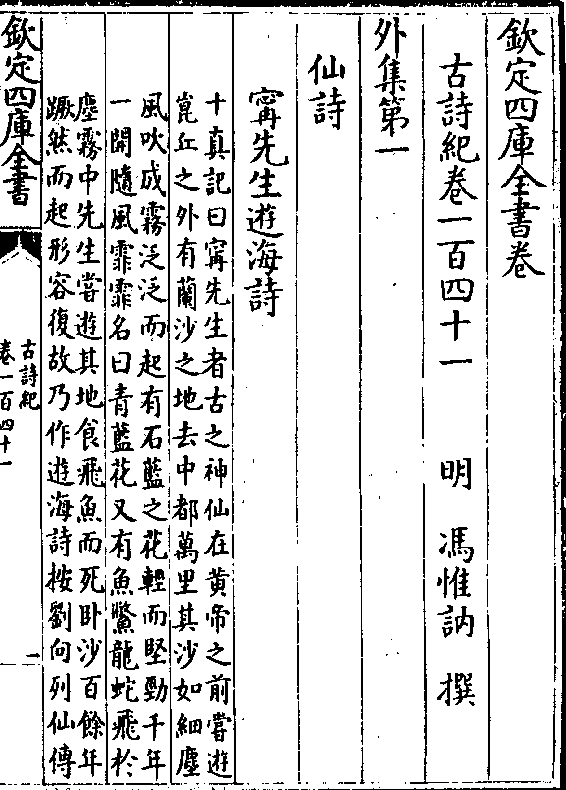 欽定四庫全書卷
古詩紀卷一百四十一　明　馮惟訥　撰
外集第一
仙詩
甯先生遊海詩
十真記曰甯先生者古之神仙在黄帝之前嘗遊
崑丘之外有蘭沙之地去中都萬里其沙如細塵
風吹成霧泛泛而起有石藍之花輕而堅勁千年
一開隨風霏霏名曰青藍花又有魚鱉龍蛇飛於
塵霧中先生嘗遊其地食飛魚而死卧沙百餘年
蹶然而起形容復故乃作遊海詩按劉向列仙傳
欽定四庫全書
古詩紀
卷一百四十一
一